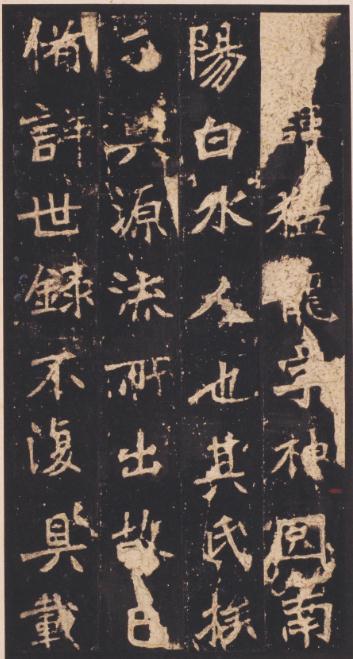 諱猛龍字神冏南
陽白水人也其氏族
源流所出故
備詳世錄不復具載